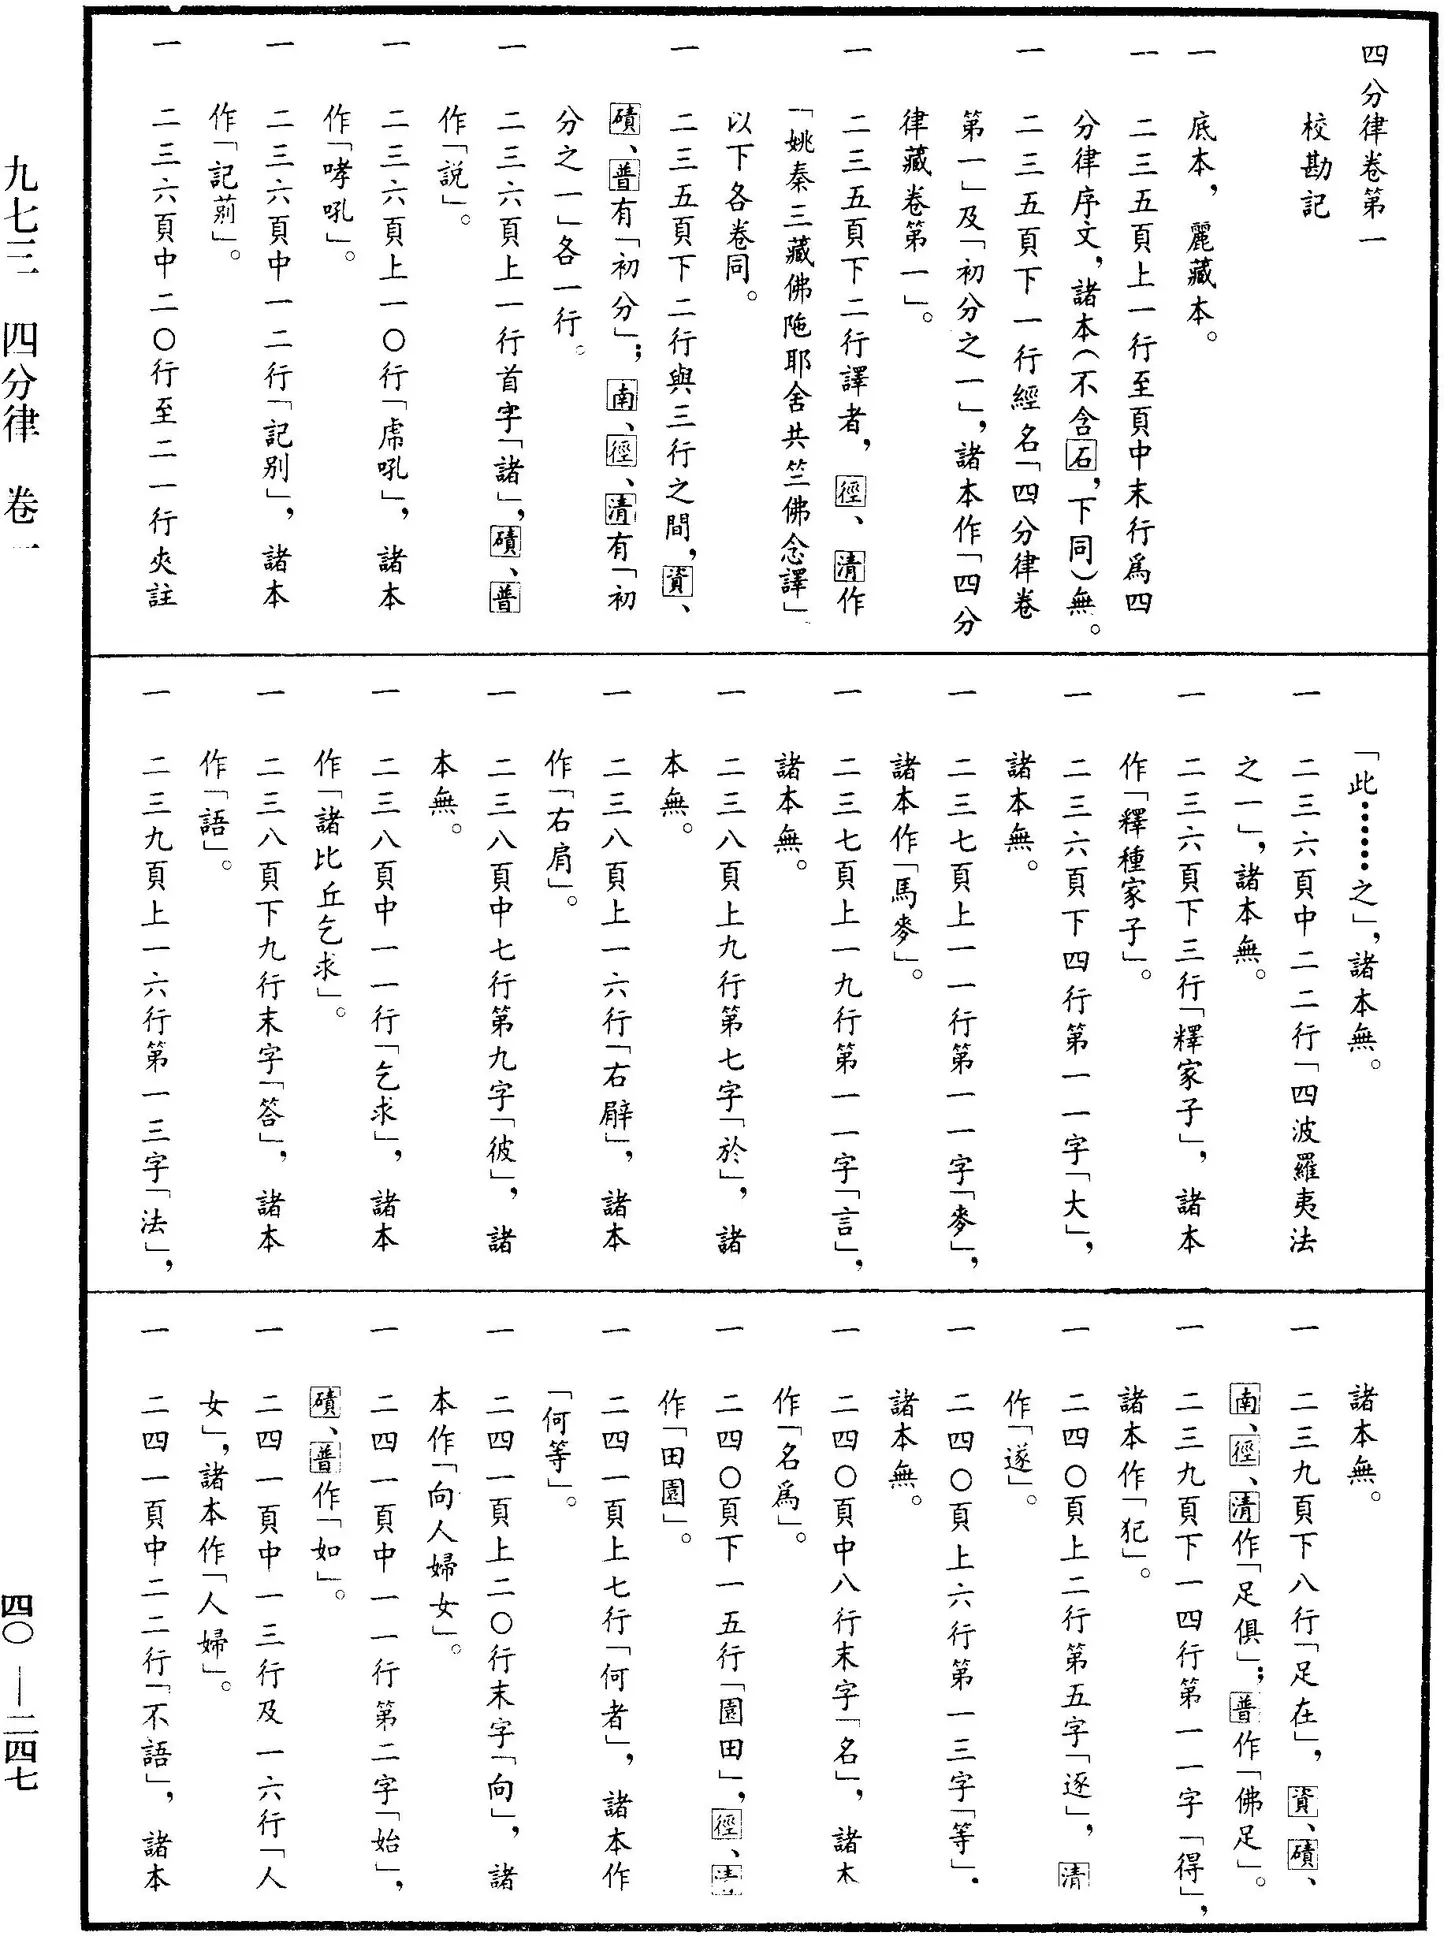 四分律卷第一
校勘記
一　底本，麗藏本。
一　二三五頁上一行至頁中末行爲四
分律序文，諸本（不含石，下同）無。
一　二三五頁下一行經名「四分律卷
第一」及「初分之一」，諸本作「四分
律藏卷第一」。
一　二三五頁下二行譯者，徑、清作
「姚秦三藏佛陁耶舍共竺佛念譯」，
以下各卷同。
一　二三五頁下二行與三行之間，資、
磧、普有「初分」；南、徑、清有「初
分之一」各一行。
一　二三六頁上一行首字「諸」，磧、普
作「説」。
一　二三六頁上一〇行「虖吼」，諸本
作「哮吼」。
一　二三六頁中一二行「記別」，諸本
作「記莂」。
一　二三六頁中二〇行至二一行夾註
「此……之」，諸本無。
一　二三六頁中二二行「四波羅夷法
之一」，諸本無。
一　二三六頁下三行「釋家子」，諸本
作「釋種家子」。
一　二三六頁下四行第一一字「大」，
諸本無。
一　二三七頁上一一行第一一字「麥」，
諸本作「馬麥」。
一　二三七頁上一九行第一一字「言」，
諸本無。
一　二三八頁上九行第七字「於」，諸
本無。
一　二三八頁上一六行「右臂」，諸本
作「右肩」。
一　二三八頁中七行第九字「彼」，諸
本無。
一　二三八頁中一一行「乞求」，諸本
作「諸比丘乞求」。
一　二三八頁下九行末字「答」，諸本
作「語」。
一　二三九頁上一六行第一三字「法」，
諸本無。
一　二三九頁下八行「足在」，資、磧、
南、徑、清作「足俱」；普作「佛足」。
一　二三九頁下一四行第一一字「得」，
諸本作「犯」。
一　二四〇頁上二行第五字「逐」，清
作「遂」。
一　二四〇頁上六行第一三字「等」，
諸本無。
一　二四〇頁中八行末字「名」，諸本
作「名爲」。
一　二四〇頁下一五行「園田」，徑、清
作「田園」。
一　二四一頁上七行「何者」，諸本作
「何等」。
一　二四一頁上二〇行末字「向」，諸
本作「向人婦女」。
一　二四一頁中一一行第二字「始」，
磧、普作「如」。
一　二四一頁中一三行及一六行「人
女」，諸本作「人婦」。
一　二四一頁中二二行「不語」，諸本
九七三　四分律　卷一
四〇—二四七